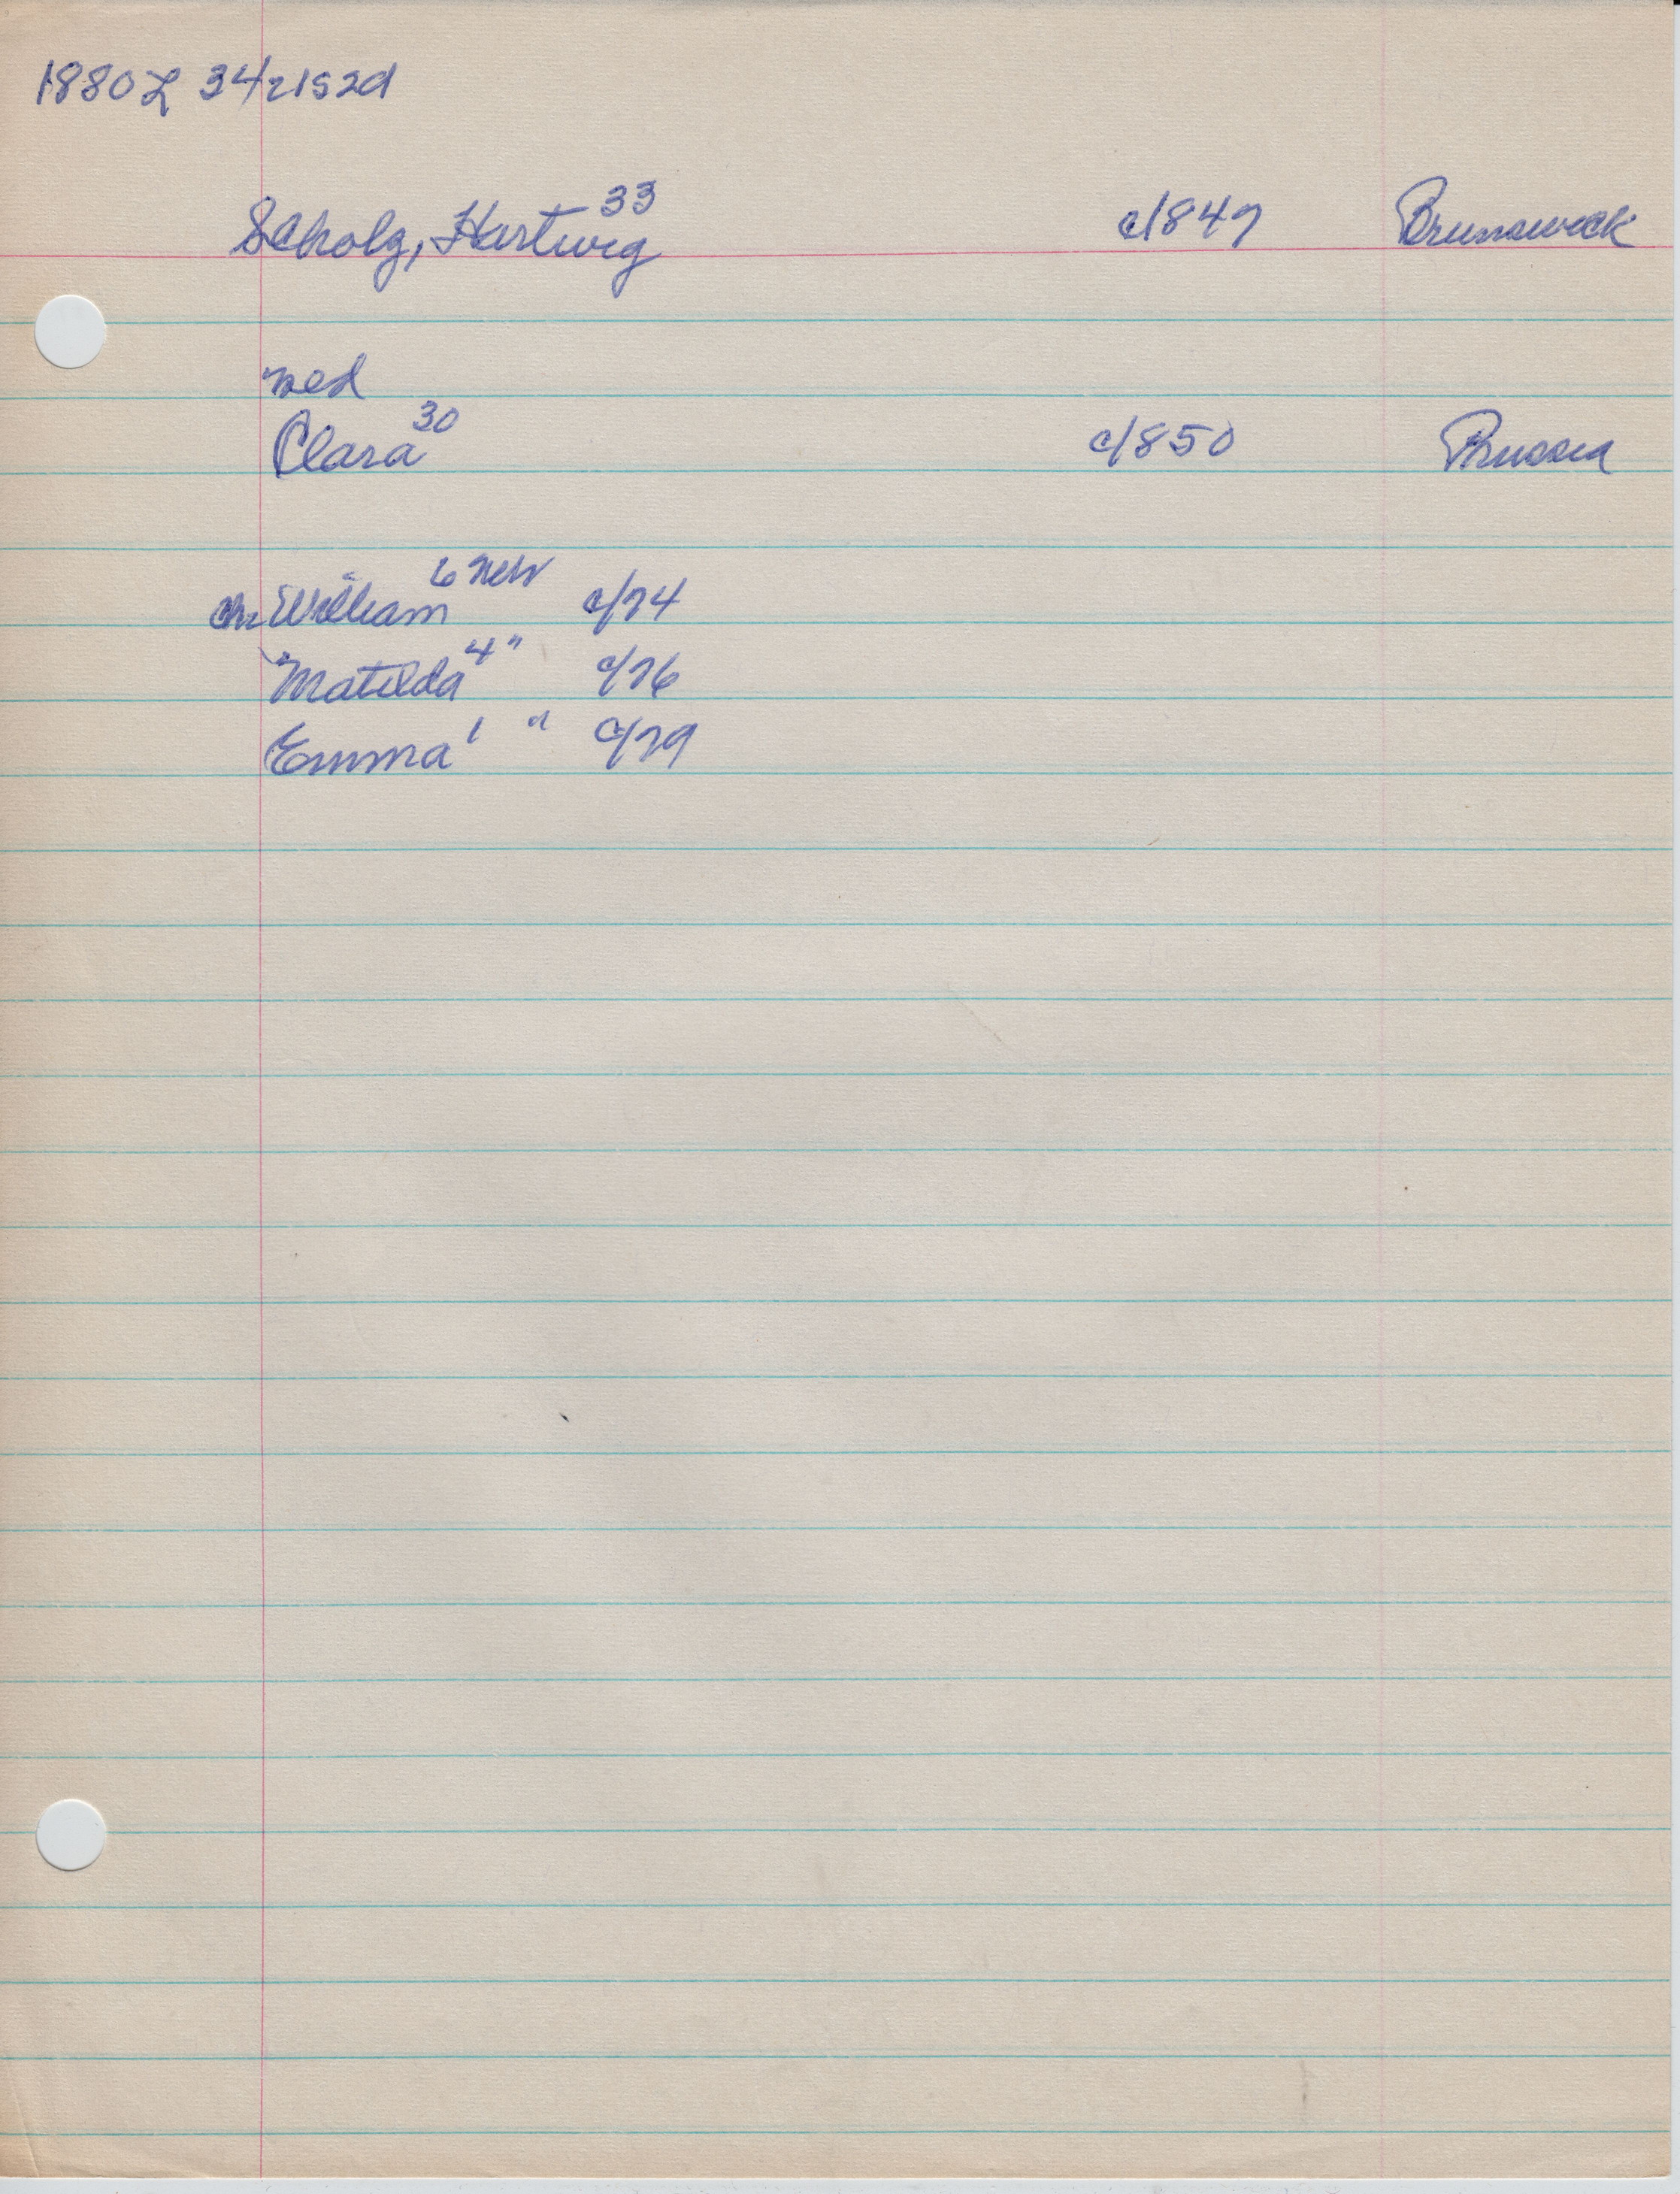 1880 L 34/21S2d
Scholz, Hartwig 33 c/1847 Brunswick
med
Clara 30 c/1850 Prussia
ch William 6 Neb c/74
Matilda 4 " c/76
Emma 1 " c/79